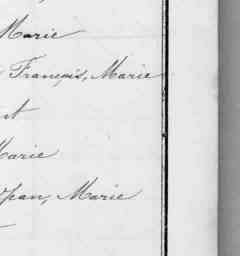 Marie
François, Marie
Marie
Jean, Marie